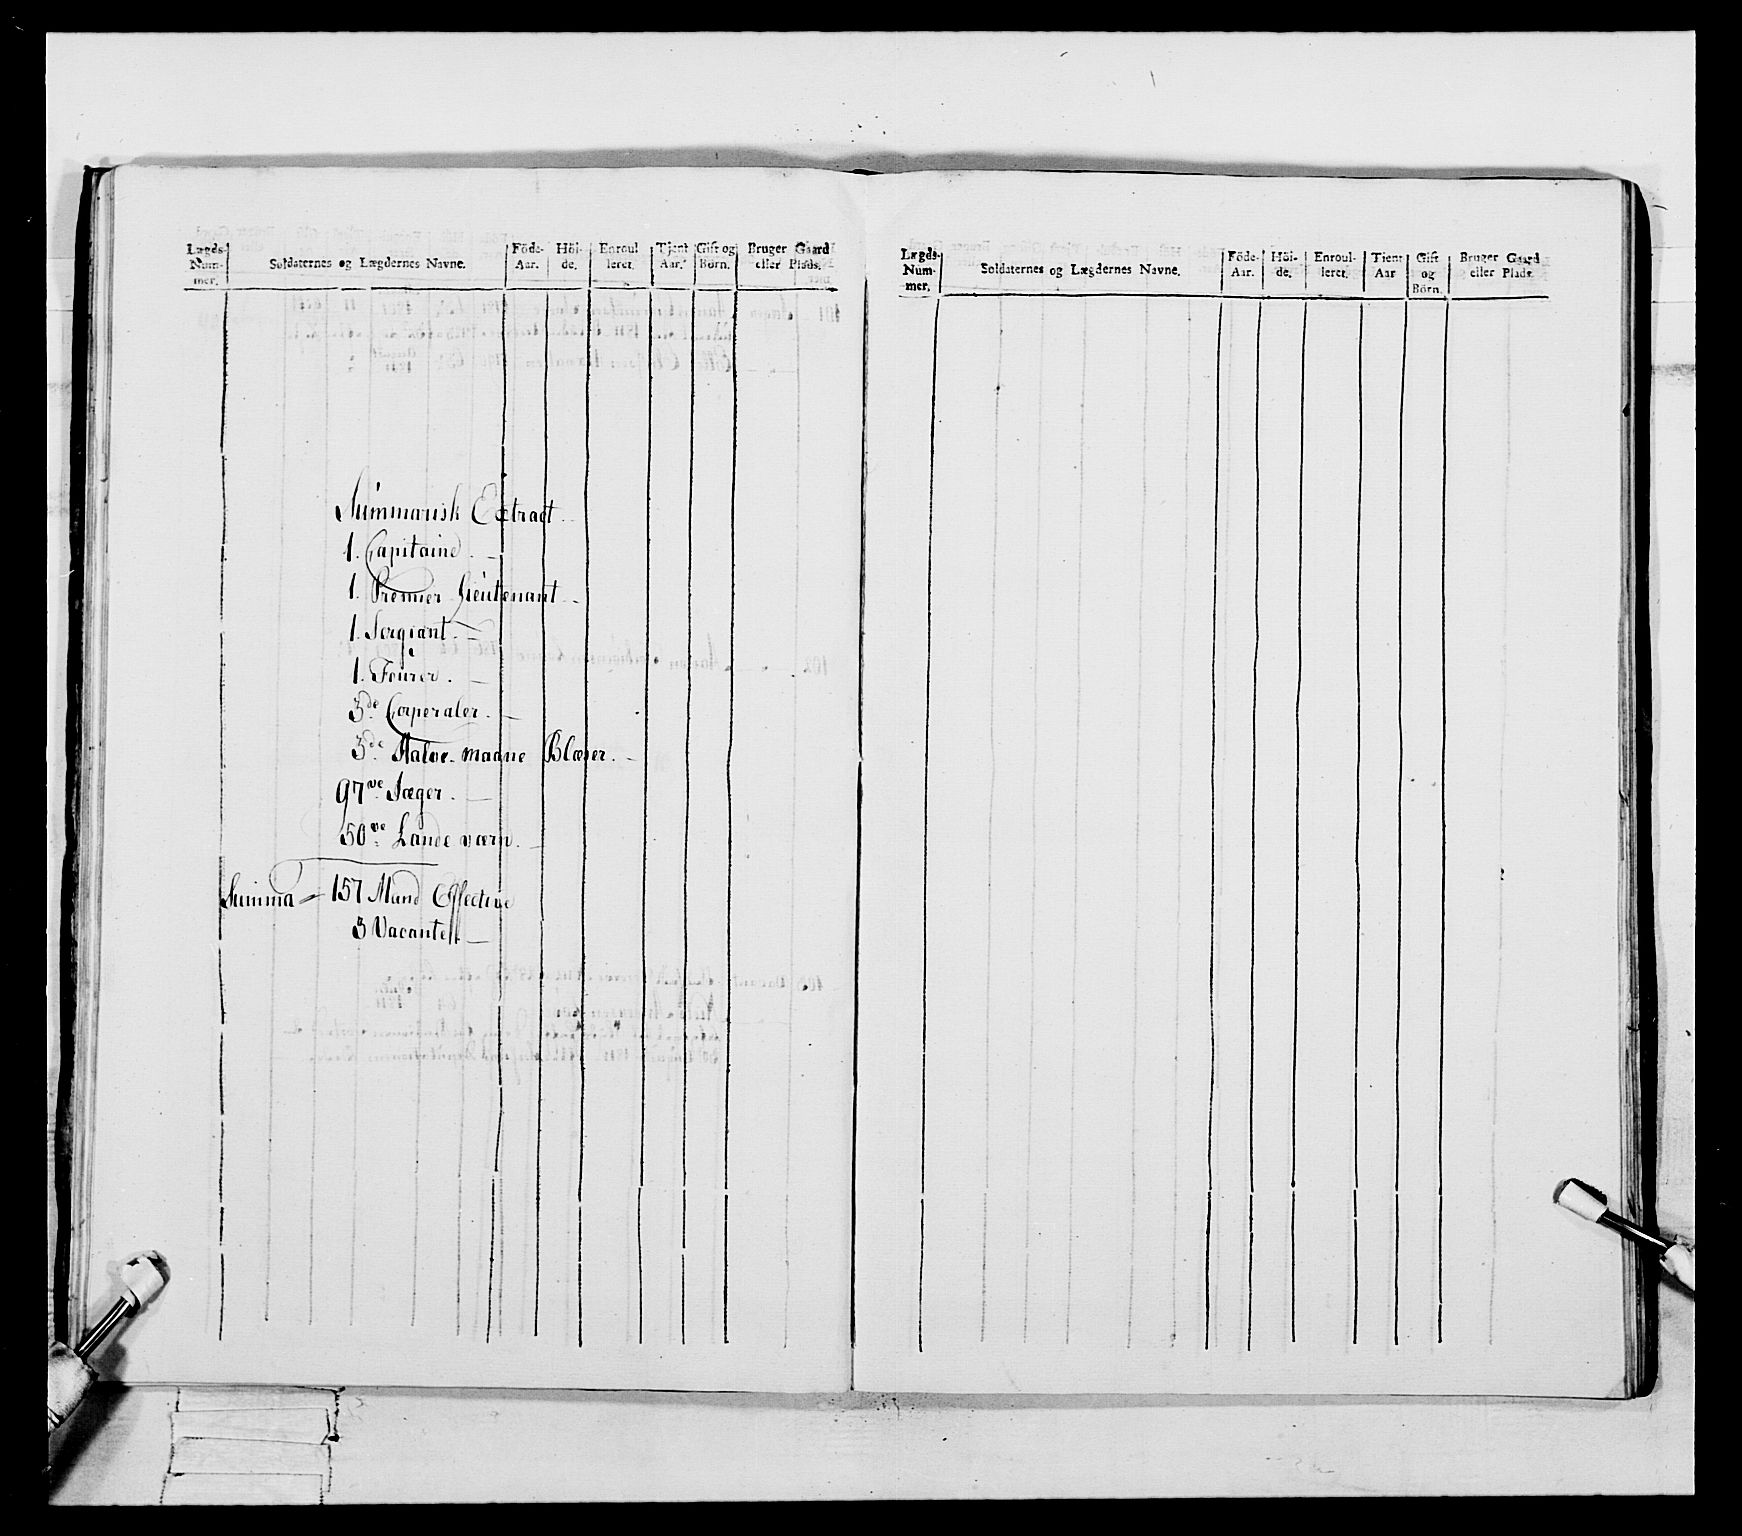 Lægds-Num-mer. Soldaternes og Lægdernes Navne. Föde-Aar. Höi-de. Enroul leret. Tjent Aar. Gift og Børn. Bruger Gaard eller Plads.
Summarisk Extract.
1. Capitaine. —
1. Premier Lieutenant —
1. Sergiant. —
1. Fourer. —
3de Corperaler. —
3de Halve-maane Blæser. —
97ve Jæger. —
50ve Lande værn. —
Summa = 157 Mand Effective
3 Vacante. —
Lægds-Num-mer. Soldaternes og Lægdernes Navne. Föde-Aar. Höi-de. Enroul-leret. Tjent Aar Gift og Börn. Bruger Gaard eller Plads.